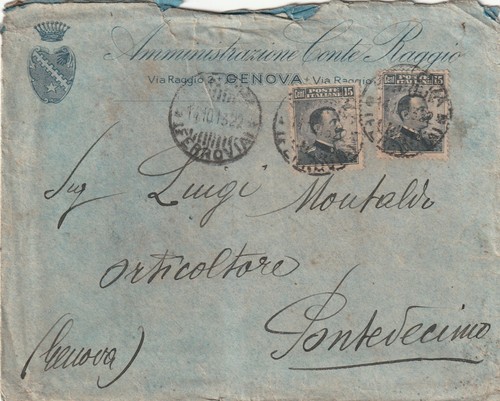 Amministrazione Conte Raggio
Via Raggio GENOVA Via Raggio
Cent. 15 POSTE ITALIANE
Cent. 15
FERROVIA
Sig Luigi Montaldi
orticoltore
Pontedecimo
(Genova)